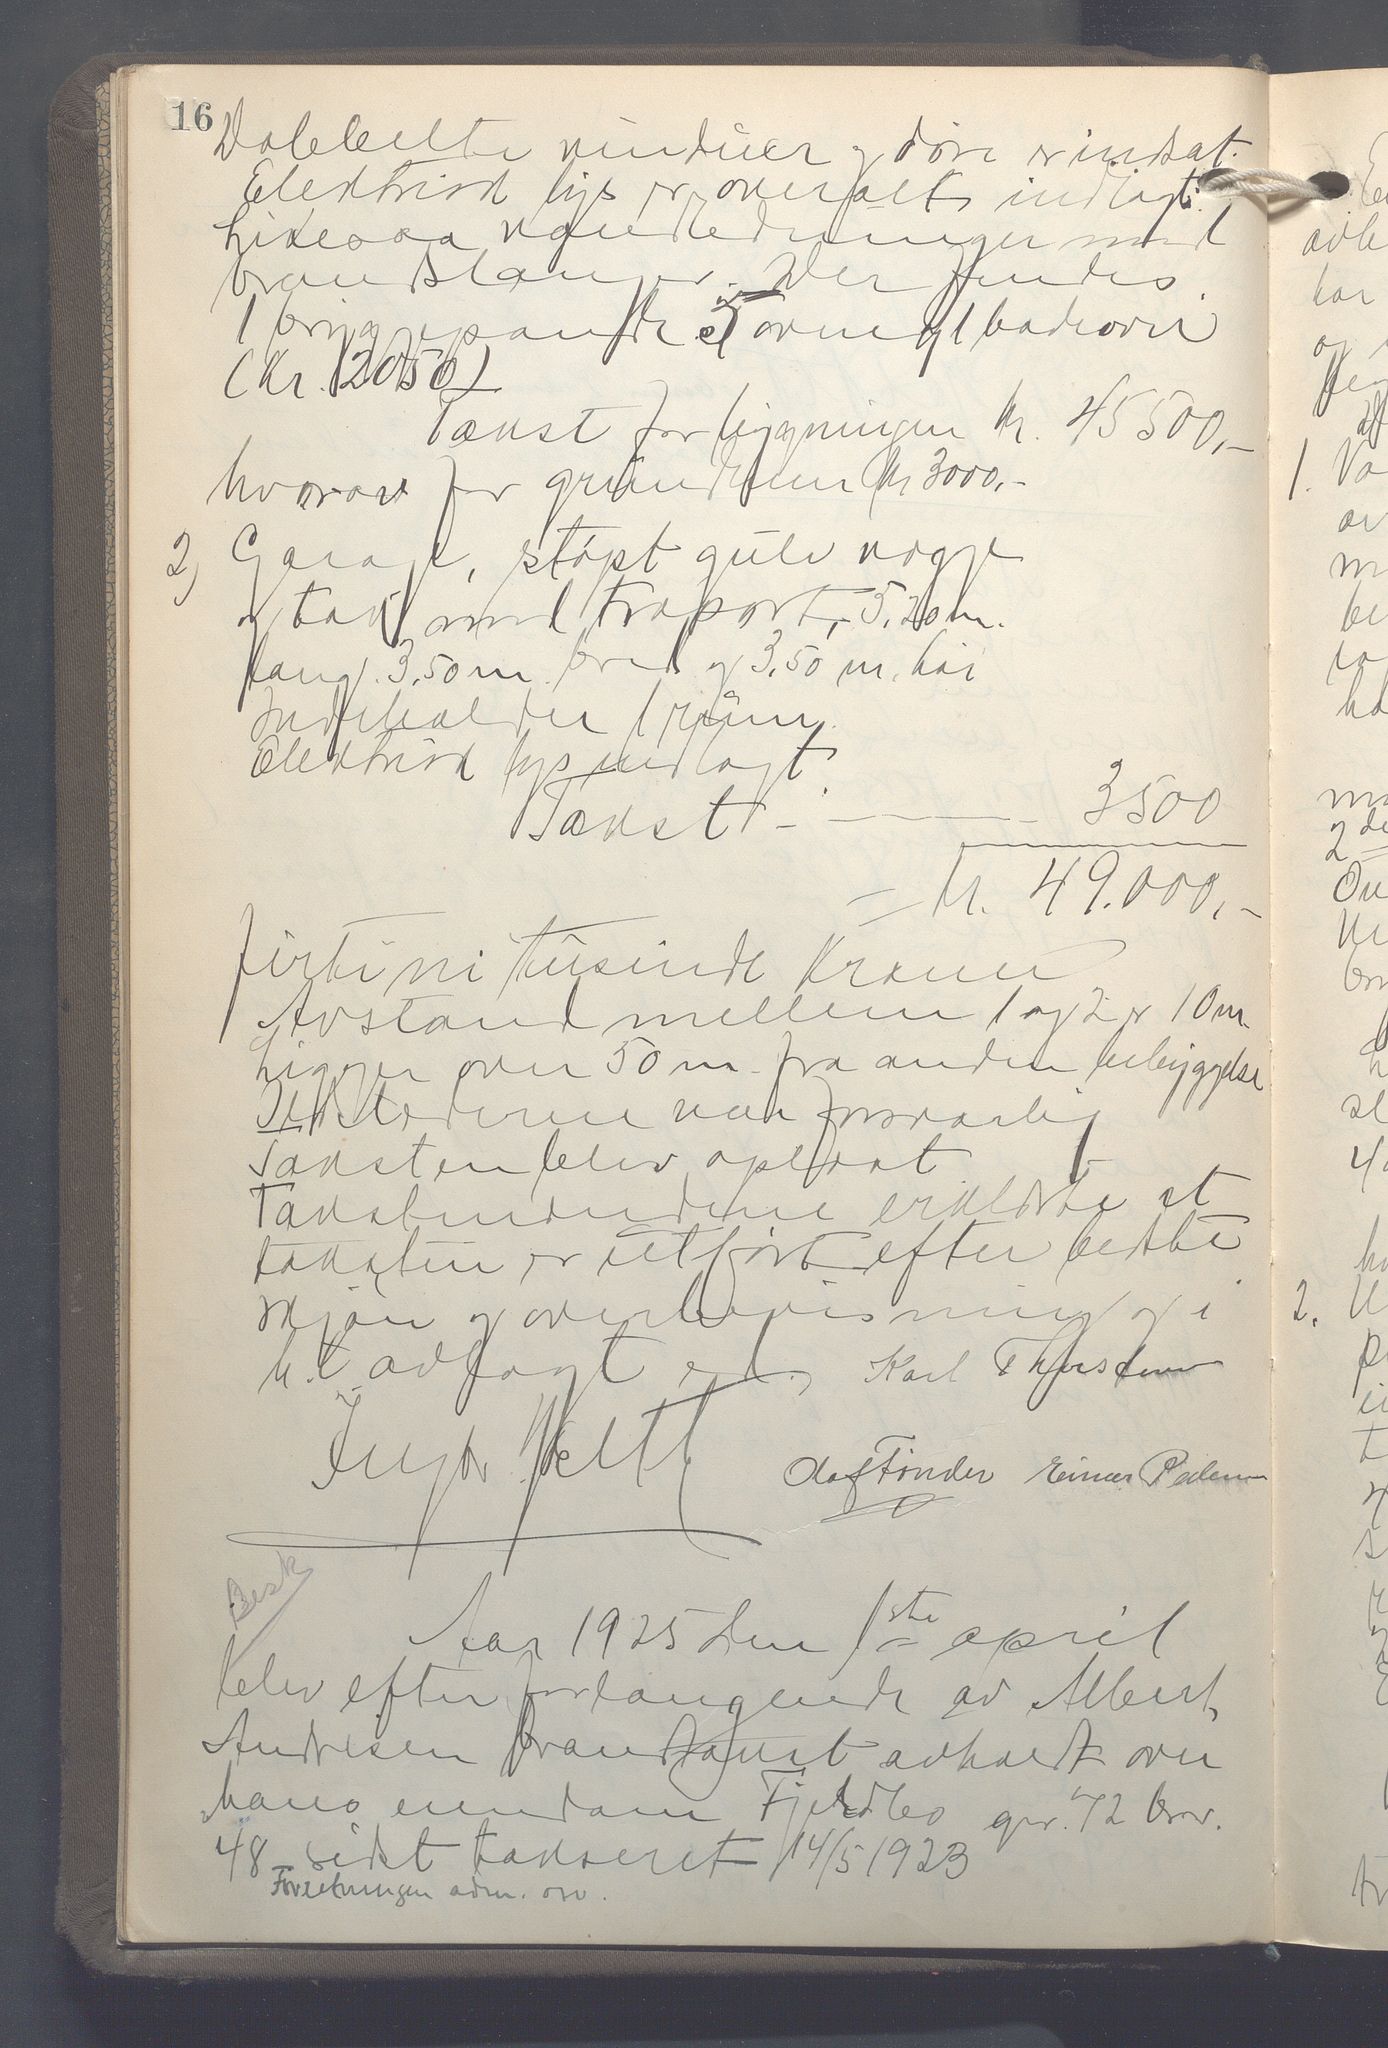 16
Dobbelte vinduer og døre er indsat.
Elektrisk lys er overalt indlagt.
Likesaa vandledninger med
brandslanger. Der findes
1 bryggepande 5 ovne og 1 badeovn
(Kr. 2050)
Takst for bygningen kr. 45500,-
hvorav for grunden kr 3000,-
2) Garage, støpt gulv vægge
og tak med traport, 5,20 m.
lang 3,50 m. bred og 3,50 m. høi
Indeholder 1 rum.
Elektrisk lys indlagt.
Takst - — — - 3500
= kr. 49.000,-
firti ni tusinde kroner
Avstand mellem 1 og 2 er 10 m.
Ligger over 50 m. fra anden bebyggelse
Ildstederne var forsvarlig
Taksten blev oplæst
Takstmændene erklærte at
taksten er utført efter bedste
skjøn og overbevisning og i
h.t. avlagt ed. Karl Thorsten
Olaf Tønder Einar Pedersen
Besk
Aar 1925 den 1ste april
blev efter forlangende av Albert
Andresen brandtakst avholdt over
hans eiendom Fjeldbo gnr. 72 brnr.
48 sidst takseret 14/5 1923
Forretningen adm. av.